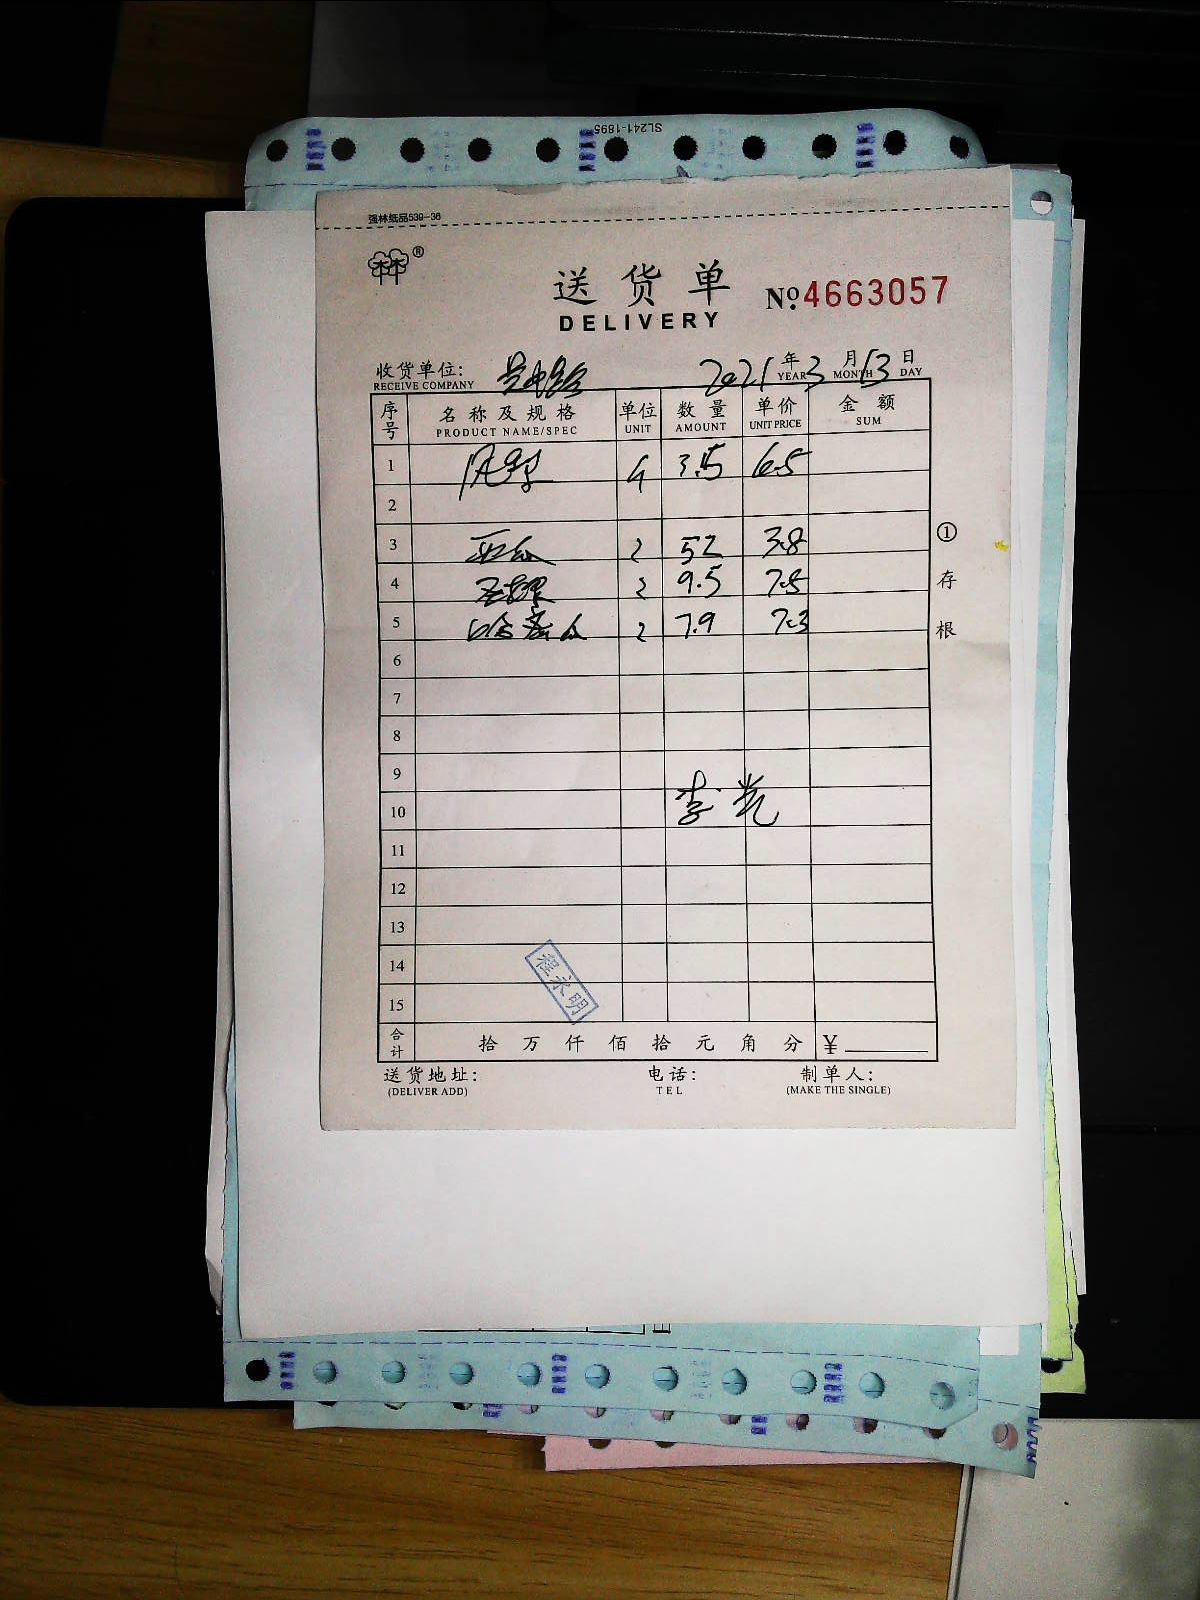 SL241-1895
强林纸品539-36
®
送货单
DELIVERY
No. 4663057
收货单位: 2021年3月13日
RECEIVE COMPANY YEAR MONTH DAY
序号 名称及规格 单位 数量 单价 金额
PRODUCT NAME/SPEC UNIT AMOUNT UNIT PRICE SUM
1 4 3.5 6.5
2
3 2 52 3.8
4 2 9.5 7.5
5 2 7.9 7.3
6
7
8
9
10 李
11
12
13
14
15
程永明
合计 拾 万 仟 佰 拾 元 角 分 ¥
送货地址: 电话: 制单人:
(DELIVER ADD) TEL (MAKE THE SINGLE)
①存根